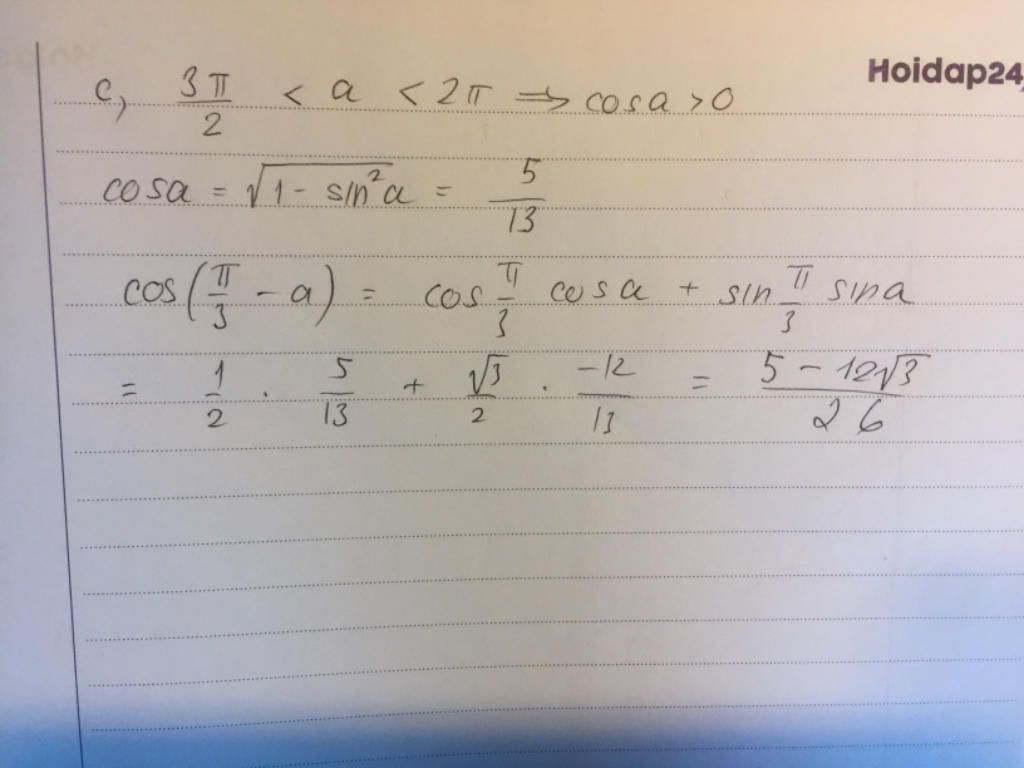 Hoidap24
c, 3π/2 < a < 2π ⇒ cosa > 0
cosa = √(1 - sin²a) = 5/13
cos(π/3 - a) = cos π/3 cosa + sin π/3 sina
= 1/2 . 5/13 + √3/2 . -12/13 = (5 - 12√3)/26